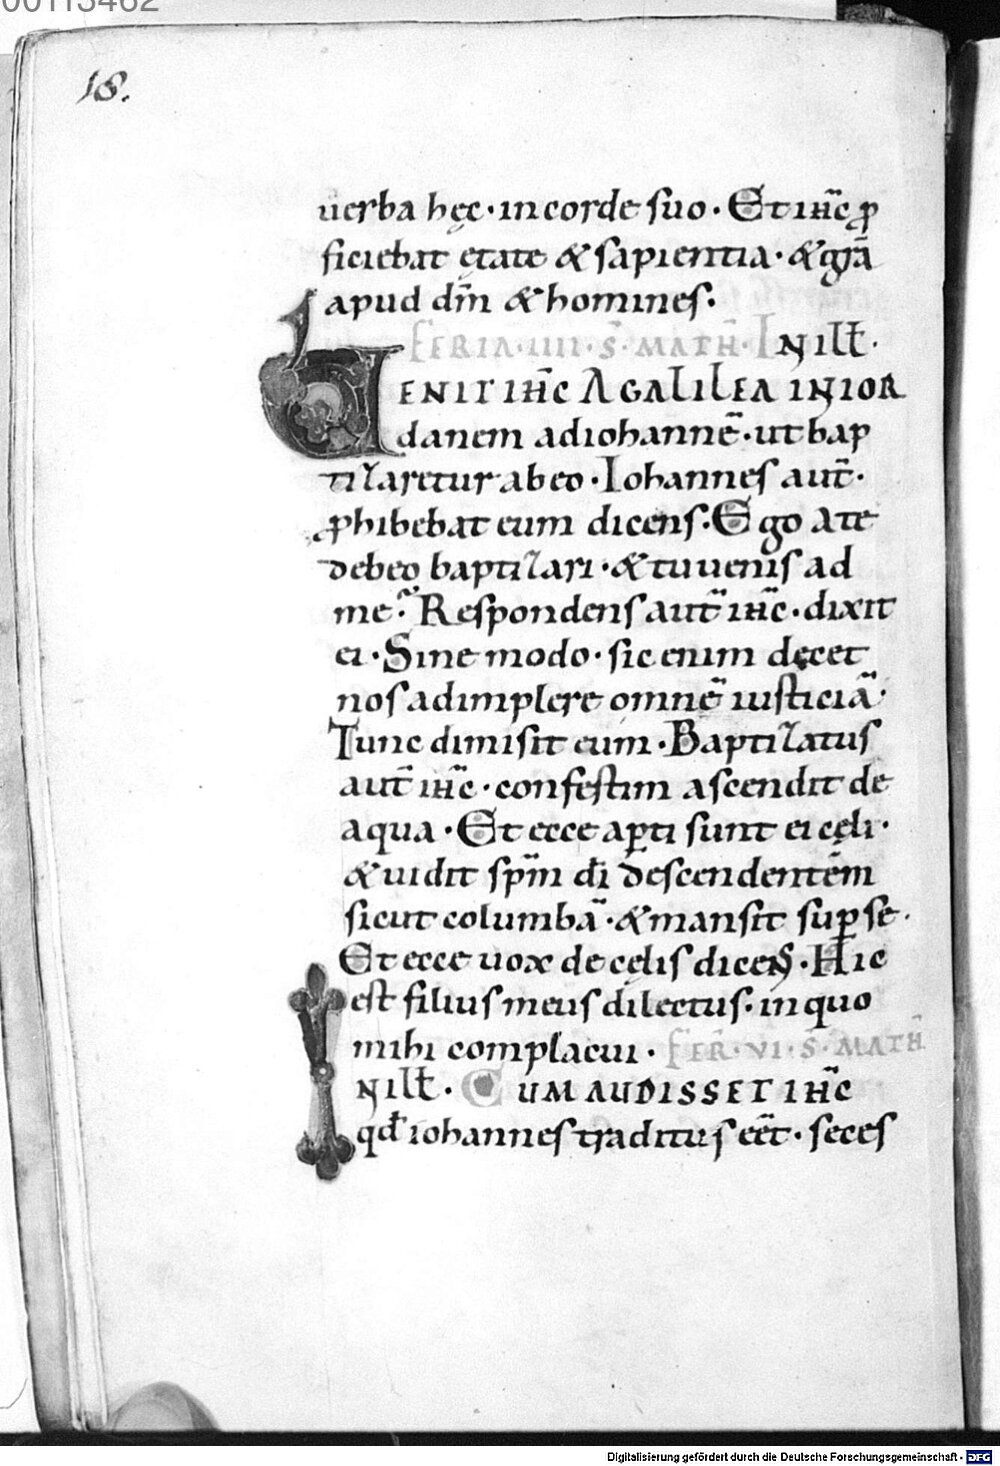 00113462
18.
uerba hęc · in corde suo · Et ihc̄ ꝓ
ficiebat ętate & sapientia · & gr̄a
apud dm̄ & homines.
FERIA · IIII · S̄ · MATH̄ · IN ILL̄ ·
UENIT IHC̄ A GALILEA IN IOR
danem ad iohannē · ut bap
tizaretur ab eo · Iohannes aut̄ ·
ꝓhibebat eum dicens · Ego a te
debeo baptizari · & tu uenis ad
me · Respondens aut̄ ihc̄ · dixit
ei · Sine modo · sic enim dęcet
nos adimplere omnē iusticiā ·
Tunc dimisit eum · Baptizatus
aut̄ ihc̄ · confestim ascendit de
aqua · Et ecce aꝑti sunt ei cęli ·
& uidit spm̄ dī descendentem
sicut columbā · & mansit suꝑ se ·
Et ecce uox de cęlis dicens · Hic
est filius meus dilectus · in quo
mihi complacui · FER̄ · VI · S̄ · MATH̄
IN ILL̄ · CUM AUDISSET IHC̄
qđ iohannes traditus eēt · seces
Digitalisierung gefördert durch die Deutsche Forschungsgemeinschaft - DFG